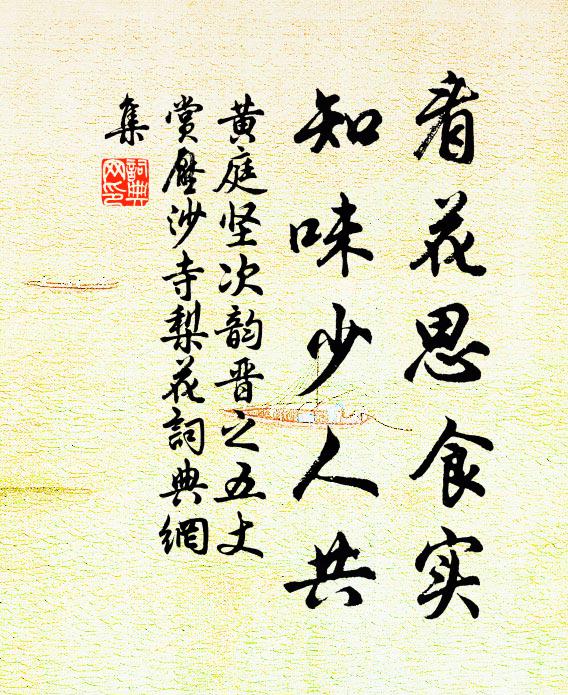 看花思食实
知味少人共
黄庭坚次韵晋之五丈
赏压沙寺梨花詞典網
集
詞典網印